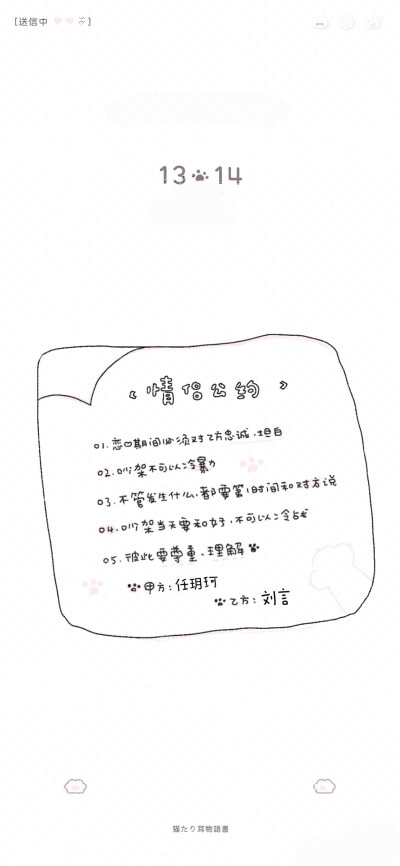 [送信中 ♥♥ ]
13 14
《情侣公约》
01.恋♡期间必须对方忠诚.坦白
02.吵架不可以冷暴力
03.不管发生什么.都要第1时间和对方说
04.吵架当天要和好.不可以冷战
05.彼此要尊重、理解
甲方:任玥珂
乙方:刘言
猫たり耳物語書